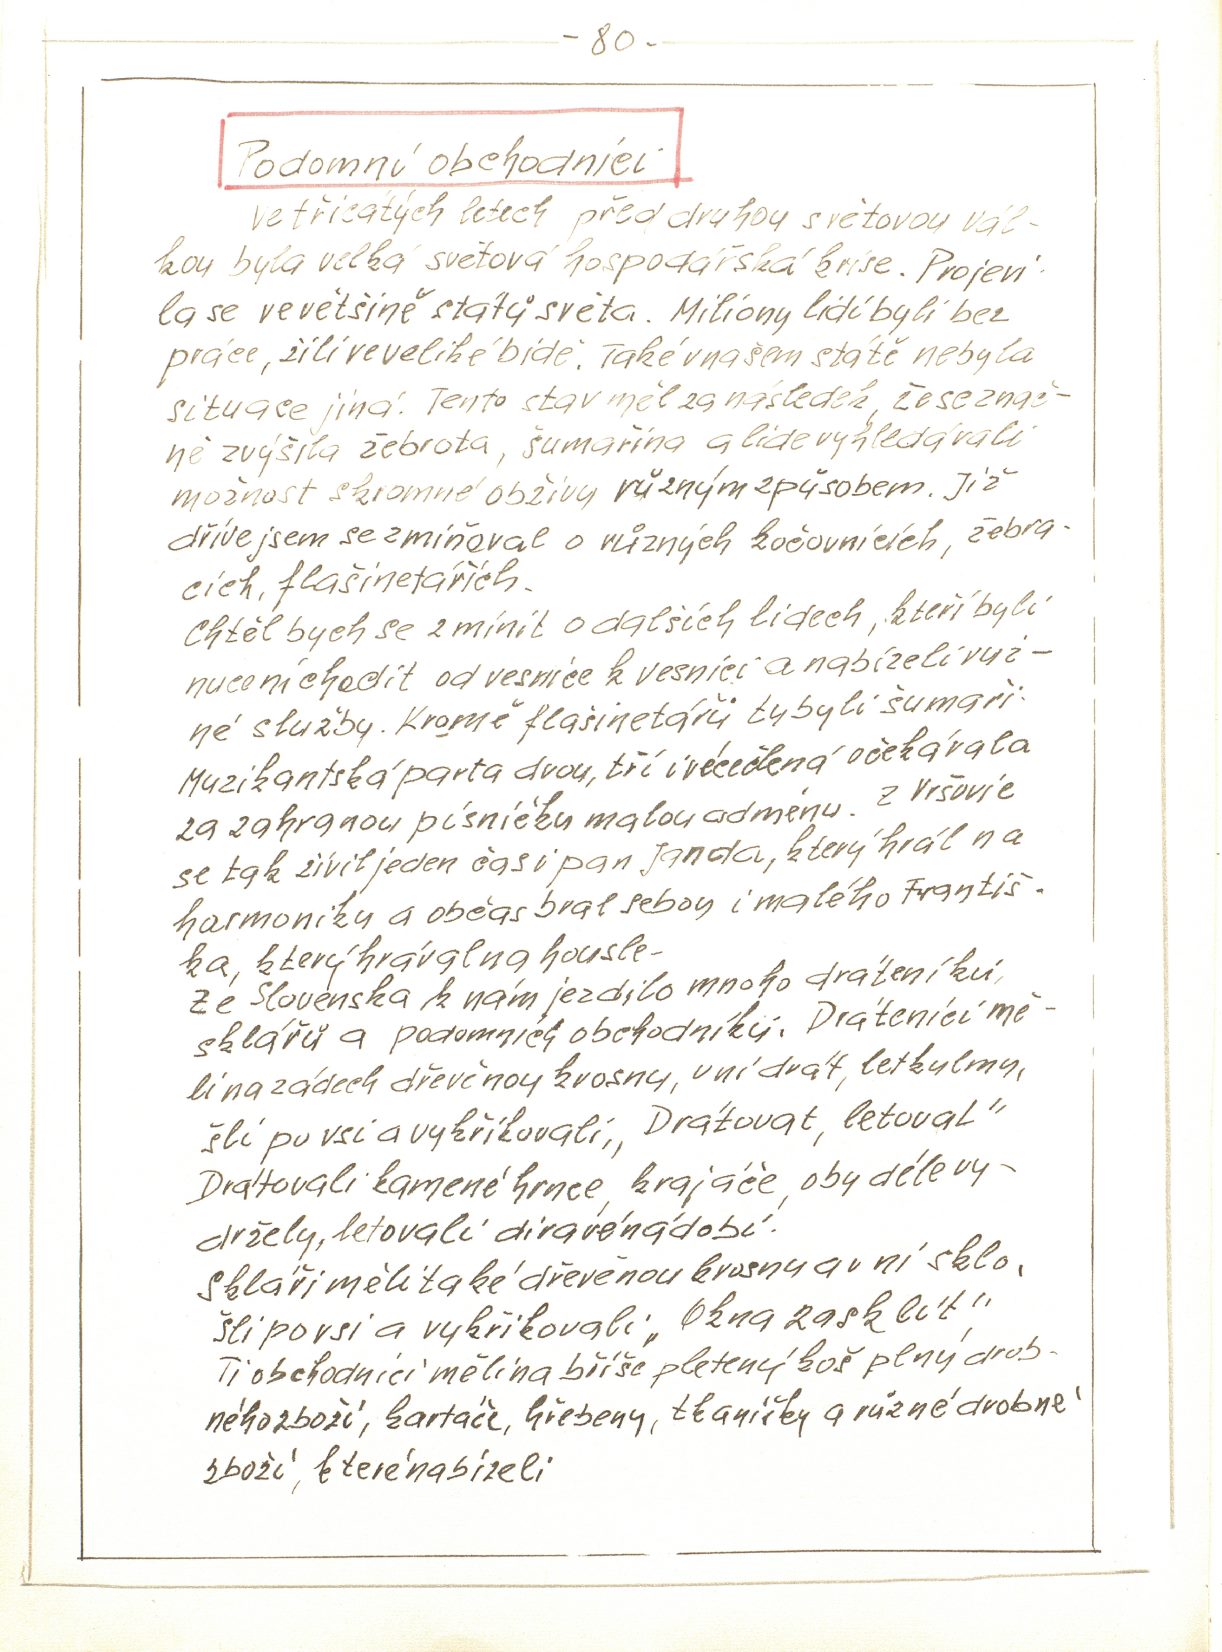 - 80 -
Podomní obchodníci
Ve třicátých letech před druhou světovou vál-
kou byla velká světová hospodářská krise. Projevi-
la se ve většině států světa. Milióny lidí byli bez
práce, žili ve veliké bídě. Také v našem státě nebyla
situace jiná. Tento stav měl za následek, že se znač-
ně zvýšila žebrota, šumařina a lidé vyhledávali
možnost skromné obživy různým způsobem. Již
dříve jsem se zmiňoval o různých kočovnících, žebra-
cích, flašinetářích.
Chtěl bych se zmínit o dalších lidech, kteří byli
nuceni chodit od vesnice k vesnici a nabízeli růz-
né služby. Kromě flašinetářů tu byli šumaři.
Muzikantská parta dvou, tří i očekávala
za zahranou písničku malou odměnu. Z Vršovic
se tak živil jeden čas i pan Janda, který hrál na
harmoniku a občas bral sebou i malého Františ-
ka, který hrával na housle.
Ze Slovenska k nám jezdilo mnoho dráteníků,
sklářů a podomních obchodníků. Dráteníci mě-
li na zádech dřevěnou krosnu, v ní drát, letkulmu,
šli po vsi a vykřikovali, „Drátovat, letovat"
Drátovali kamené hrnce, krajáče, aby déle vy-
držely, letovali děravé nádobí.
Skláři měli také dřevěnou krosnu a v ní sklo,
šli po vsi a vykřikovali „Okna zasklít"
Ti obchodníci měli na bříše pletený koš plný drob-
ného zboží, kartáče, hřebeny, tkaničky a různé drobné
zboží, které nabízeli